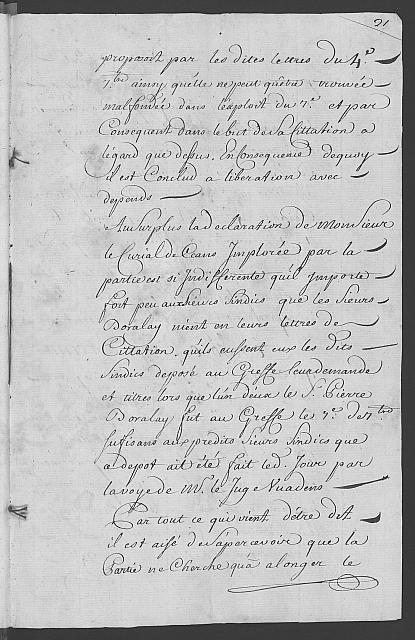 21
proposoit par les dites lettres du 4e.
7bre ainsy qu'elle ne peut qu'être trouvée
malfondée dans l'exploit du 7e. et par
Consequent dans le but de la Cittation a
légard que dessus. En consequence dequoy
il est Conclud a liberation avec
depends
Au Surplus la declaration de Monsieur
le Curial de Ceans Implorée par la
partie est si Indifferente qu'il Importe
fort peu aux Sieurs Sindics que les Sieurs
Doralay nient en leurs lettres de
Cittation, qu'ils eussent eux les dits
Sindics deposé au Greffe leur demande
et titres lors que l'un deux le Sr. Pierre
Doralay fut au Greffe le 7e. de 7bre
suffisans aux predits Sieurs Sindics que
ce depot ait été fait led. Jour par
la voye de Mr. le Juge Vuadens
Par tout ce qui vient d'être dit
il est aisé de s'apercevoir que la
Partie ne Cherche qu'a alonger le